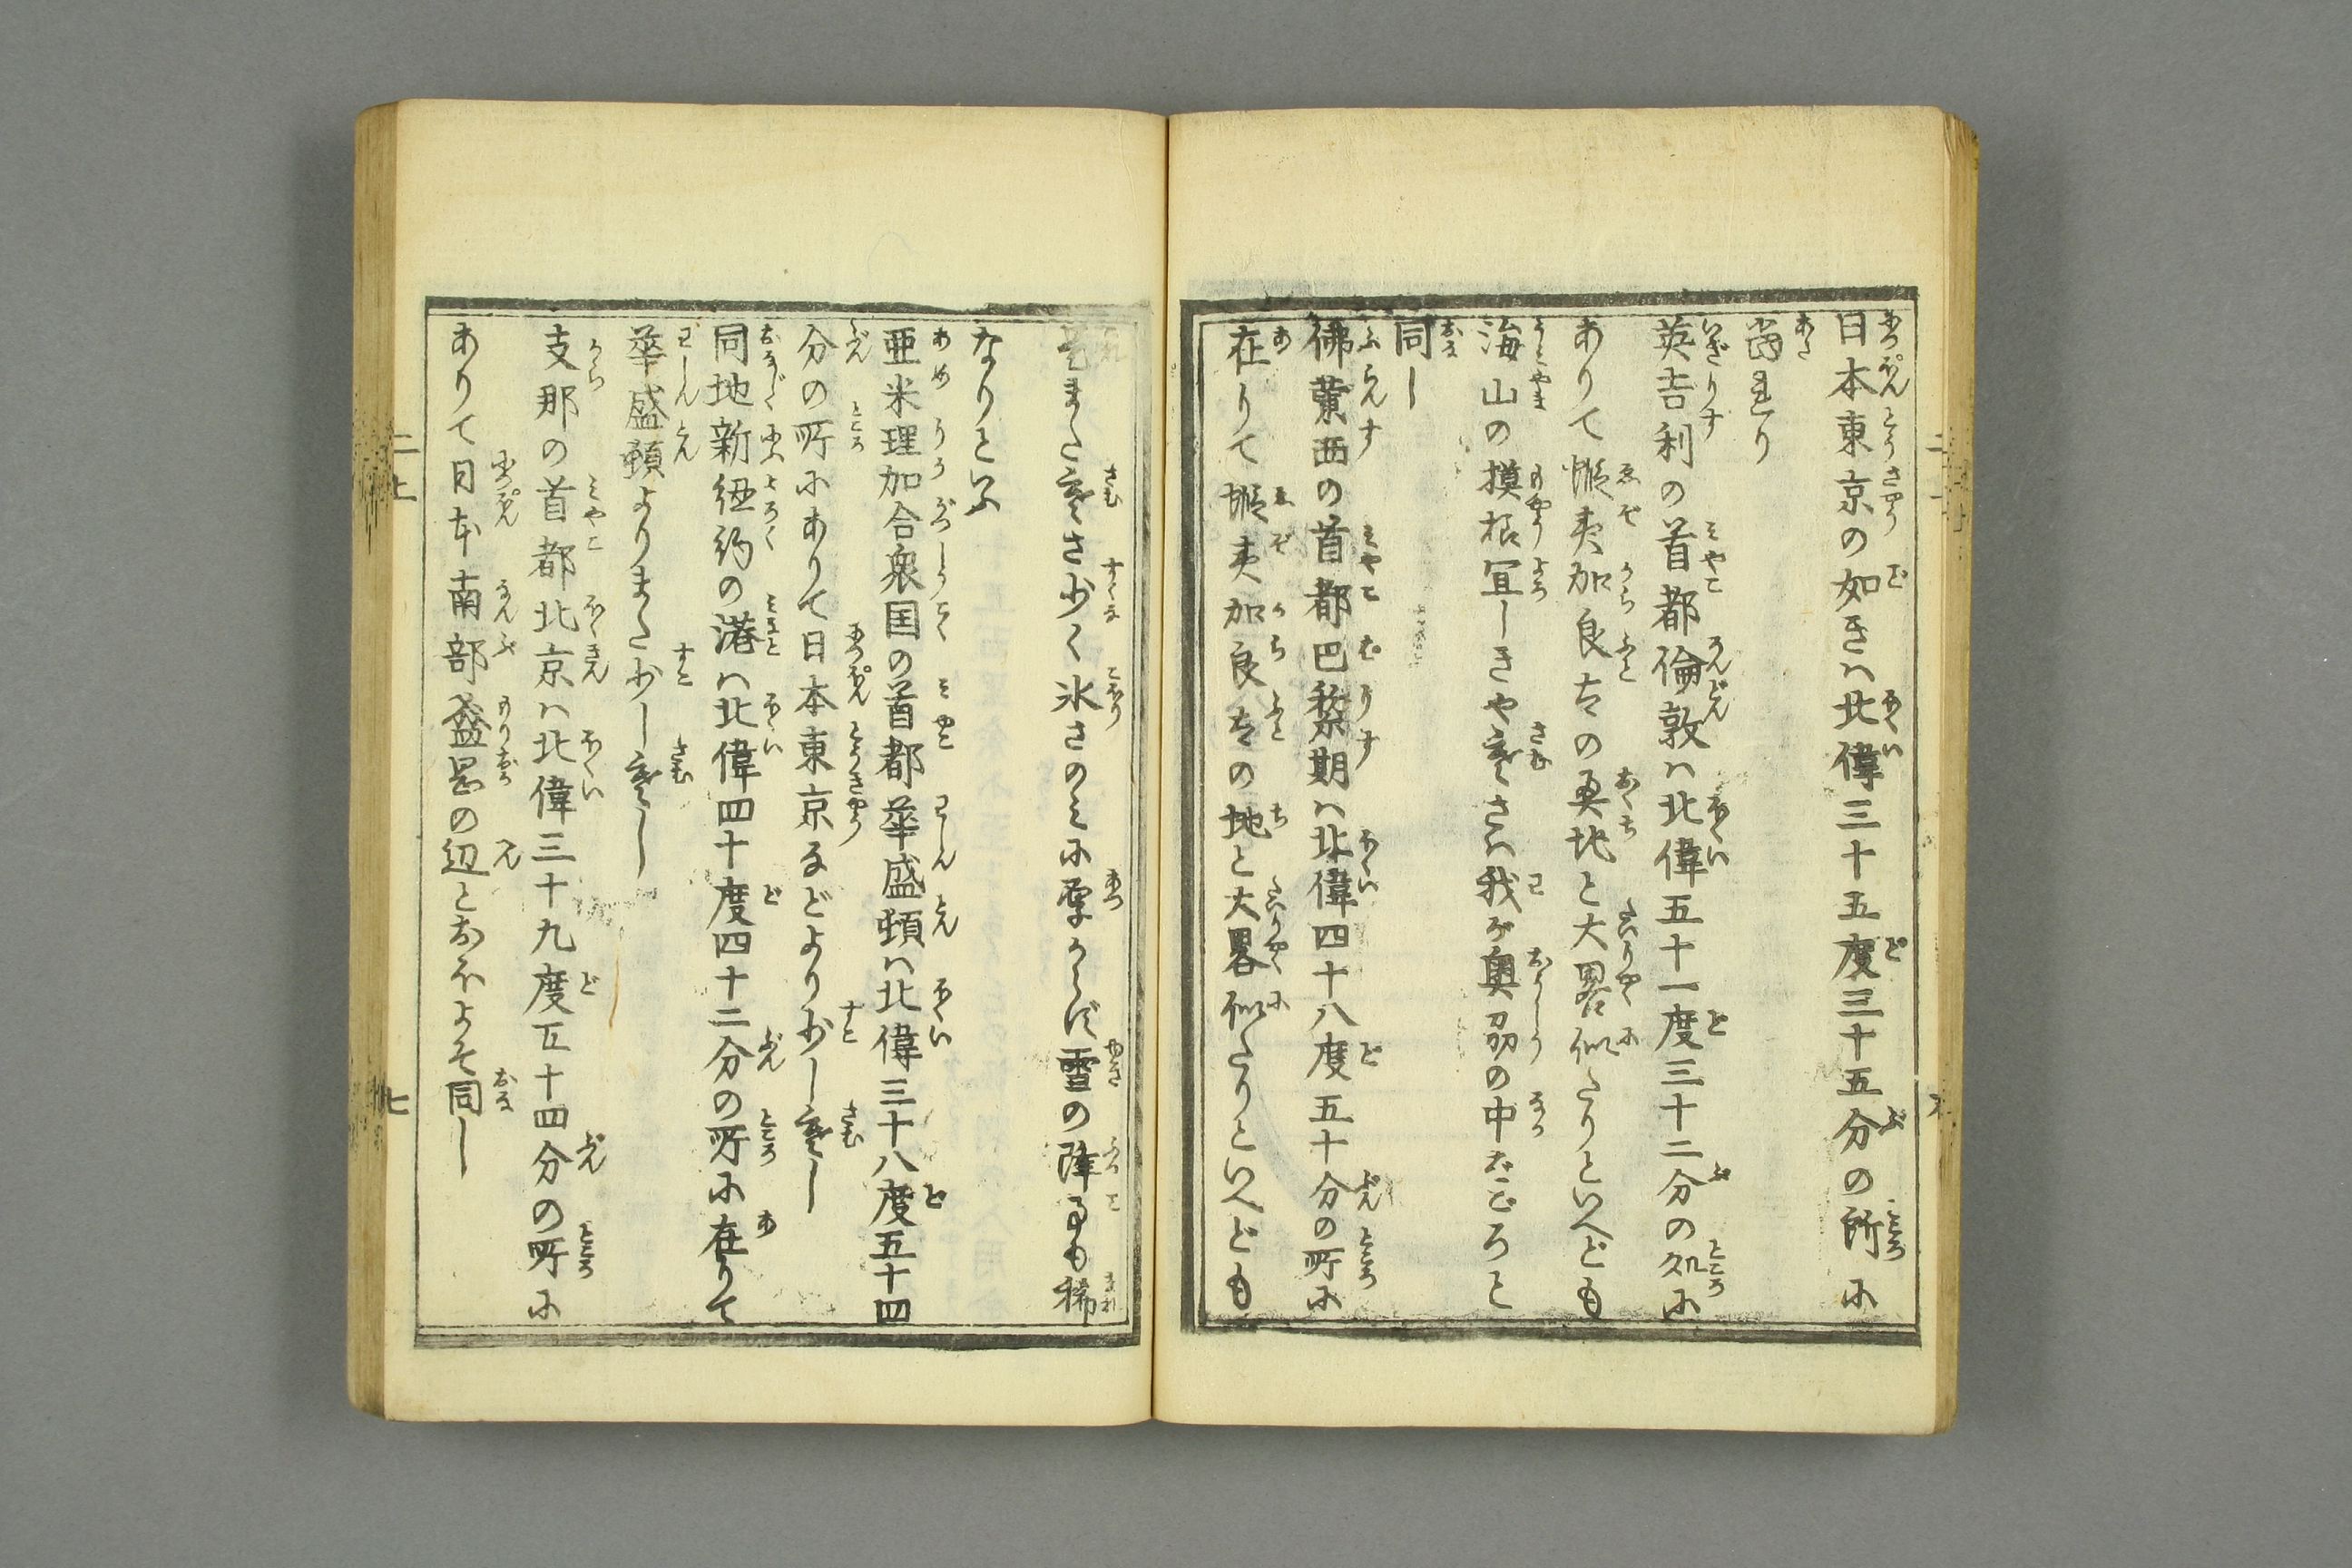 日本東京の如きハ北偉三十五度三十五分の所に
当れり
英吉利の首都倫敦ハ北偉五十一度三十二分の処に
ありて蝦夷加良太の奥地と大畧似たりといへども
海山の摸様宜しきや寒さハ我が奥羽の中なごろと
同し
佛蘭西の首都巴黎斯ハ北偉四十八度五十分の所に
在りて蝦夷加良太の地と大畧似たりといへども
是また寒さ少く氷さのミに厚からず雪の降る事も稀
なりといふ
亜米理加合衆国の首都華盛頓ハ北偉三十八度五十四
分の所にありて日本東京などより少し寒し
同地新紐約の港ハ北偉四十度四十二分の所に在りて
華盛頓よりまた少し寒し
支那の首都北京ハ北偉三十九度五十四分の所に
ありて日本南部盛岡の辺とおほよそ同し
二上
七